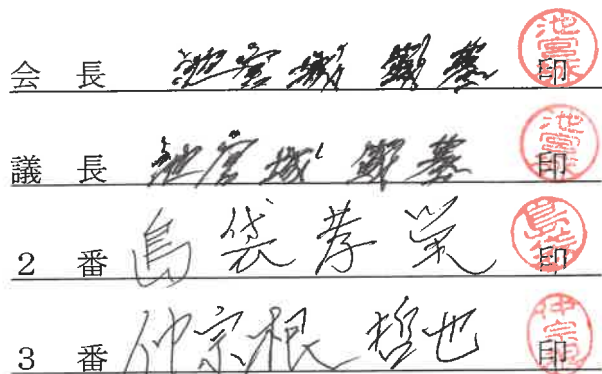 会 長 池宮城 印
議 長 池宮城 印
2 番 島袋 孝栄 印
3 番 仲宗根 哲也 印